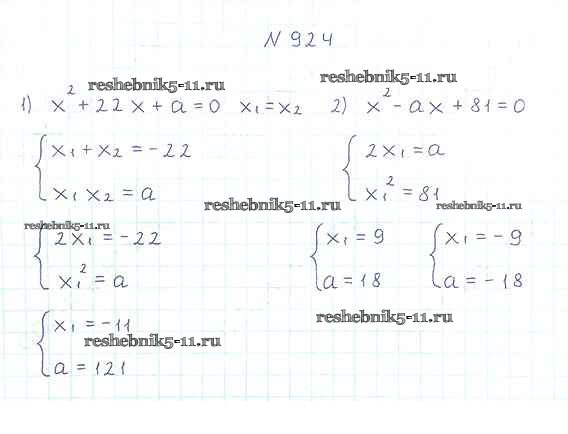 N 924
reshebnik5-11.ru reshebnik5-11.ru
1) x² + 22x + a = 0 x₁ = x₂ 2) x² - ax + 81 = 0
{ x₁ + x₂ = -22
x₁ x₂ = a
{ 2x₁ = a
x₁² = 81
reshebnik5-11.ru reshebnik5-11.ru
reshebnik5-11.ru
{ 2x₁ = -22
x₁² = a
{ x₁ = 9
a = 18
{ x₁ = -9
a = -18
{ x₁ = -11
a = 121
reshebnik5-11.ru
reshebnik5-11.ru